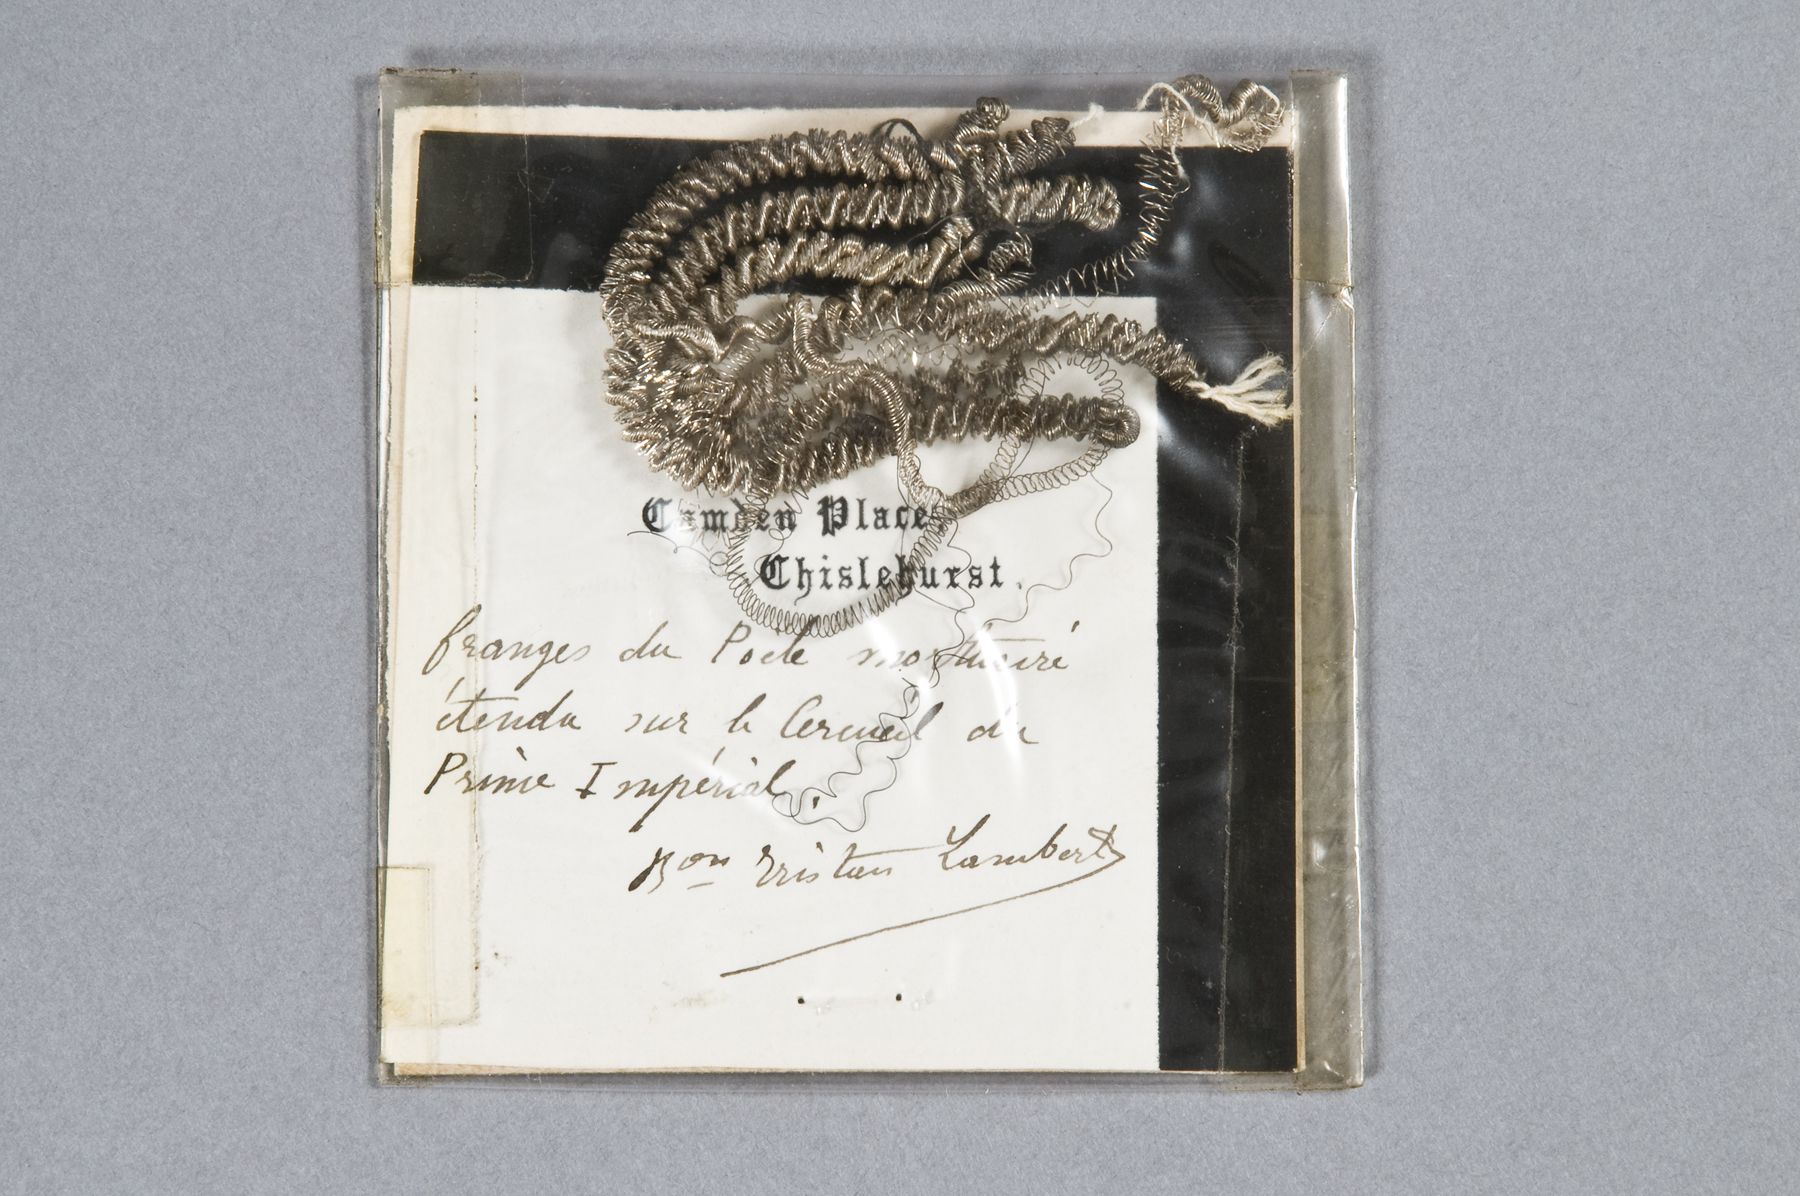 Camden Place
Chislehurst.
franges du Poële mortuaire
étendu sur le Cercueil du
Prince Impérial.
Bon Tristan Lambert